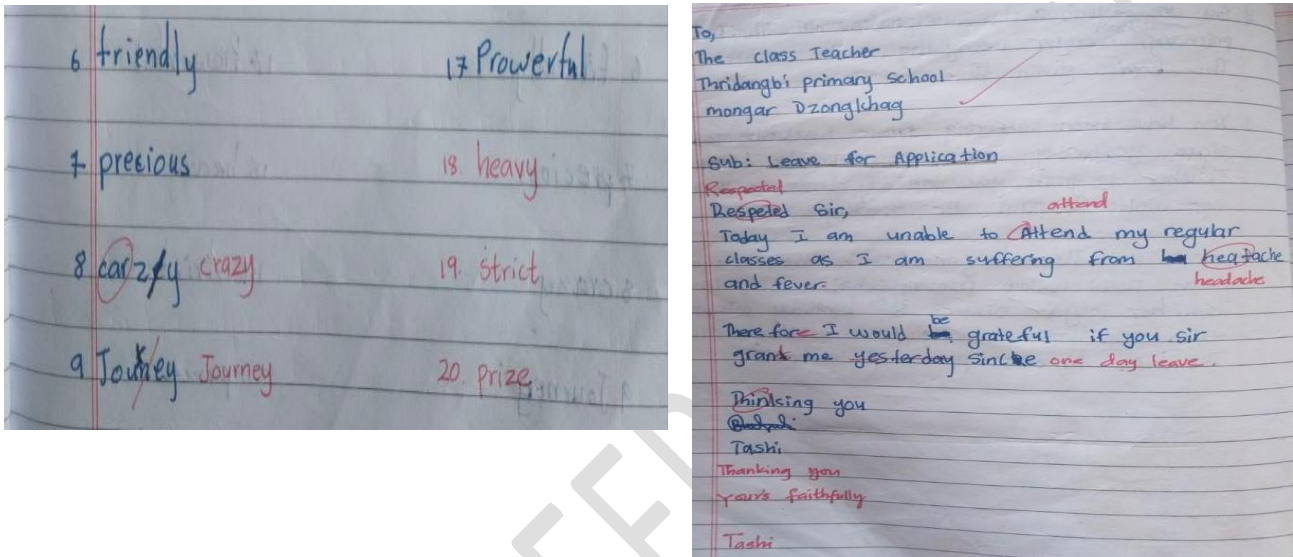 6 friendly
17 Prowerful
7 precious
18. heavy
8 carzy crazy
19. strict
9 Journey
20. prize
To,
The class Teacher
Thridangbi primary School
mongar Dzongkhag
Sub: Leave for Application
Respected
Respeted Sir,
attend
Today I am unable to Attend my regular
classes as I am suffering from heatache
and fever.
headache
be
There fore I would grateful if you sir
grant me yesterday since one day leave.
Thinking you
Tashi
Thanking you
your's faithfully
Tashi